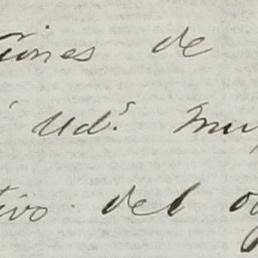 ciones de
Ud. muy
tivo del